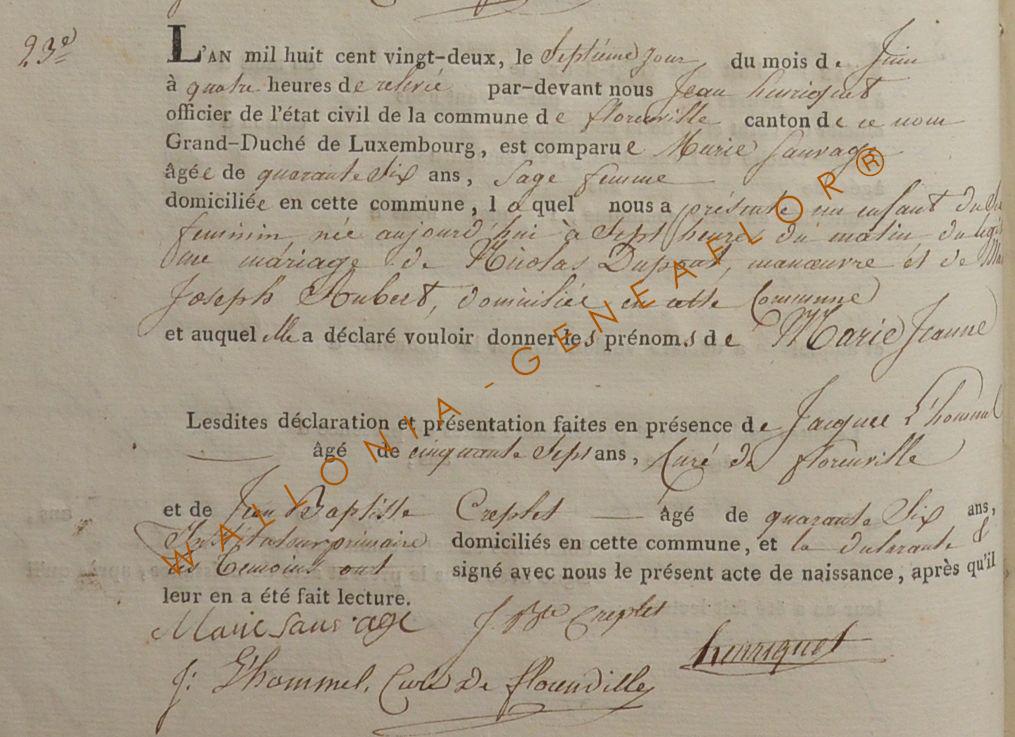 23e
L'AN mil huit cent vingt-deux, le Septième jour du mois de Juin
à quatre heures de relevée par-devant nous Jean henriquet
officier de l'état civil de la commune de florenville canton de ce nom
Grand-Duché de Luxembourg, est comparue Marie Sauvage
âgée de quarante Six ans, Sage femme
domiciliée en cette commune, laquel nous a présenté un enfant du
feminin née aujourd'hui à Sept heures du matin du
me mariage de Nicolas Dupont, manœuvre et de
Joseph Aubert, domiciliée en cette Commune
et auquel elle a déclaré vouloir donner les prénoms de Marie Jeanne
Lesdites déclaration et présentation faites en présence de Jacques L'hommel
âgé de cinquante Sept ans, Curé de florenville
et de Jean Baptiste Creplet âgé de quarante Six ans,
Instituteur primaire domiciliés en cette commune, et la déclarante &
les témoins ont signé avec nous le présent acte de naissance, après qu'il
leur en a été fait lecture.
Marie Sauvage J. Bte Creplet
henriquet
J: L'hommel, Curé de florenville
WALLONIA - GENEAFLOR®